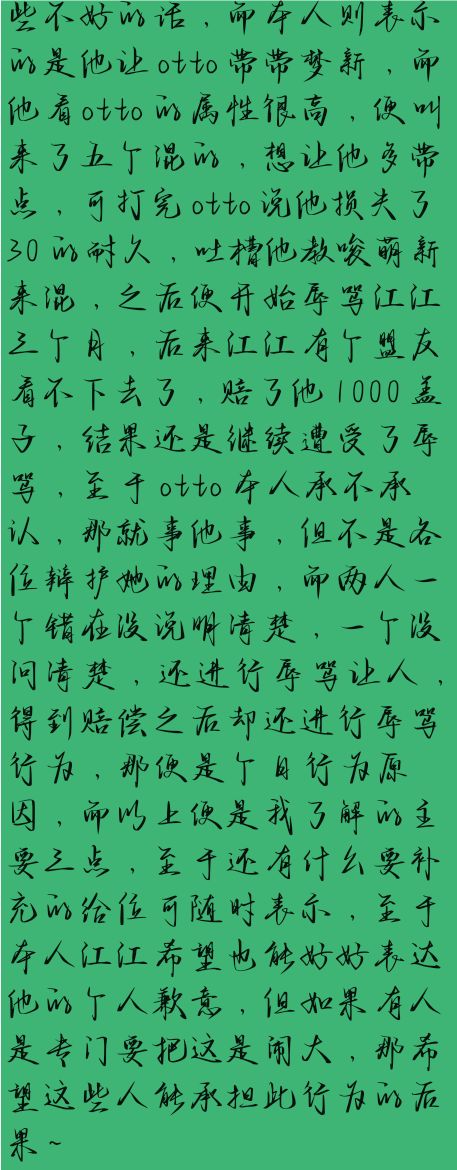 些不好的话，而本人则表示
的是他让otto带带梦新，而
他看otto的属性很高，便叫
来了五个混的，想让他多带
点，可打完otto说他损失了
30的耐久，吐槽他教唆萌新
来混，之后便开始辱骂江江
三个月，后来江江有个盟友
看不下去了，赔了他1000盖
子，结果还是继续遭受了辱
骂，至于otto本人承不承
认，那就事他事，但不是各
位辩护她的理由，而两人一
个错在没说明清楚，一个没
问清楚，还进行辱骂让人，
得到赔偿之后却还进行辱骂
行为，那便是个自行为原
因，而以上便是我了解的主
要三点，至于还有什么要补
充的给位可随时表示，至于
本人江江希望也能好好表达
他的个人歉意，但如果有人
是专门要把这是闹大，那希
望这些人能承担此行为的后
果~